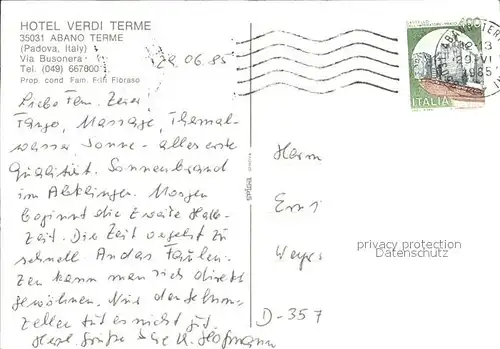 HOTEL VERDI TERME
35031 ABANO TERME
(Padova, Italy)
Via Busonera
Tel. (049) 667800
Prop. cond. Fam. Flli Fioraso
29.06.85
Liebe Fam.
Fango, Massage, Thermal-
wasser, Sonne - alles erste
Qualität. Sonnenbrand
im Abklingen. Morgen
beginnt die zweite Halb-
Zeit. Die Zeit vergeht zu
schnell. An das Faulen-
zen kann man sich direkt
gewöhnen. Nur den
zellen tut es nicht gut.
Herzl. Grüße Ihre K. Hofmann
Herrn
Erns
Weyr
D-357
ITALIA
12-13
29 VI
1985
privacy protection
Datenschutz